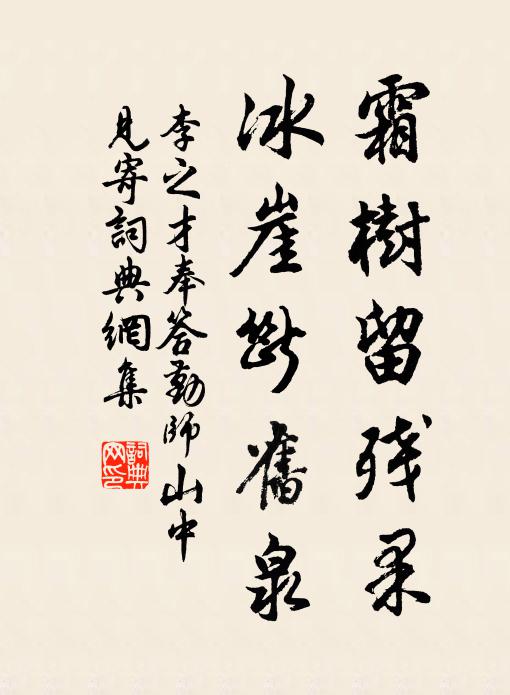 霜樹留殘果
冰崖斷舊泉
李之才奉答勤師山中
見寄詞典網集
詞典网印